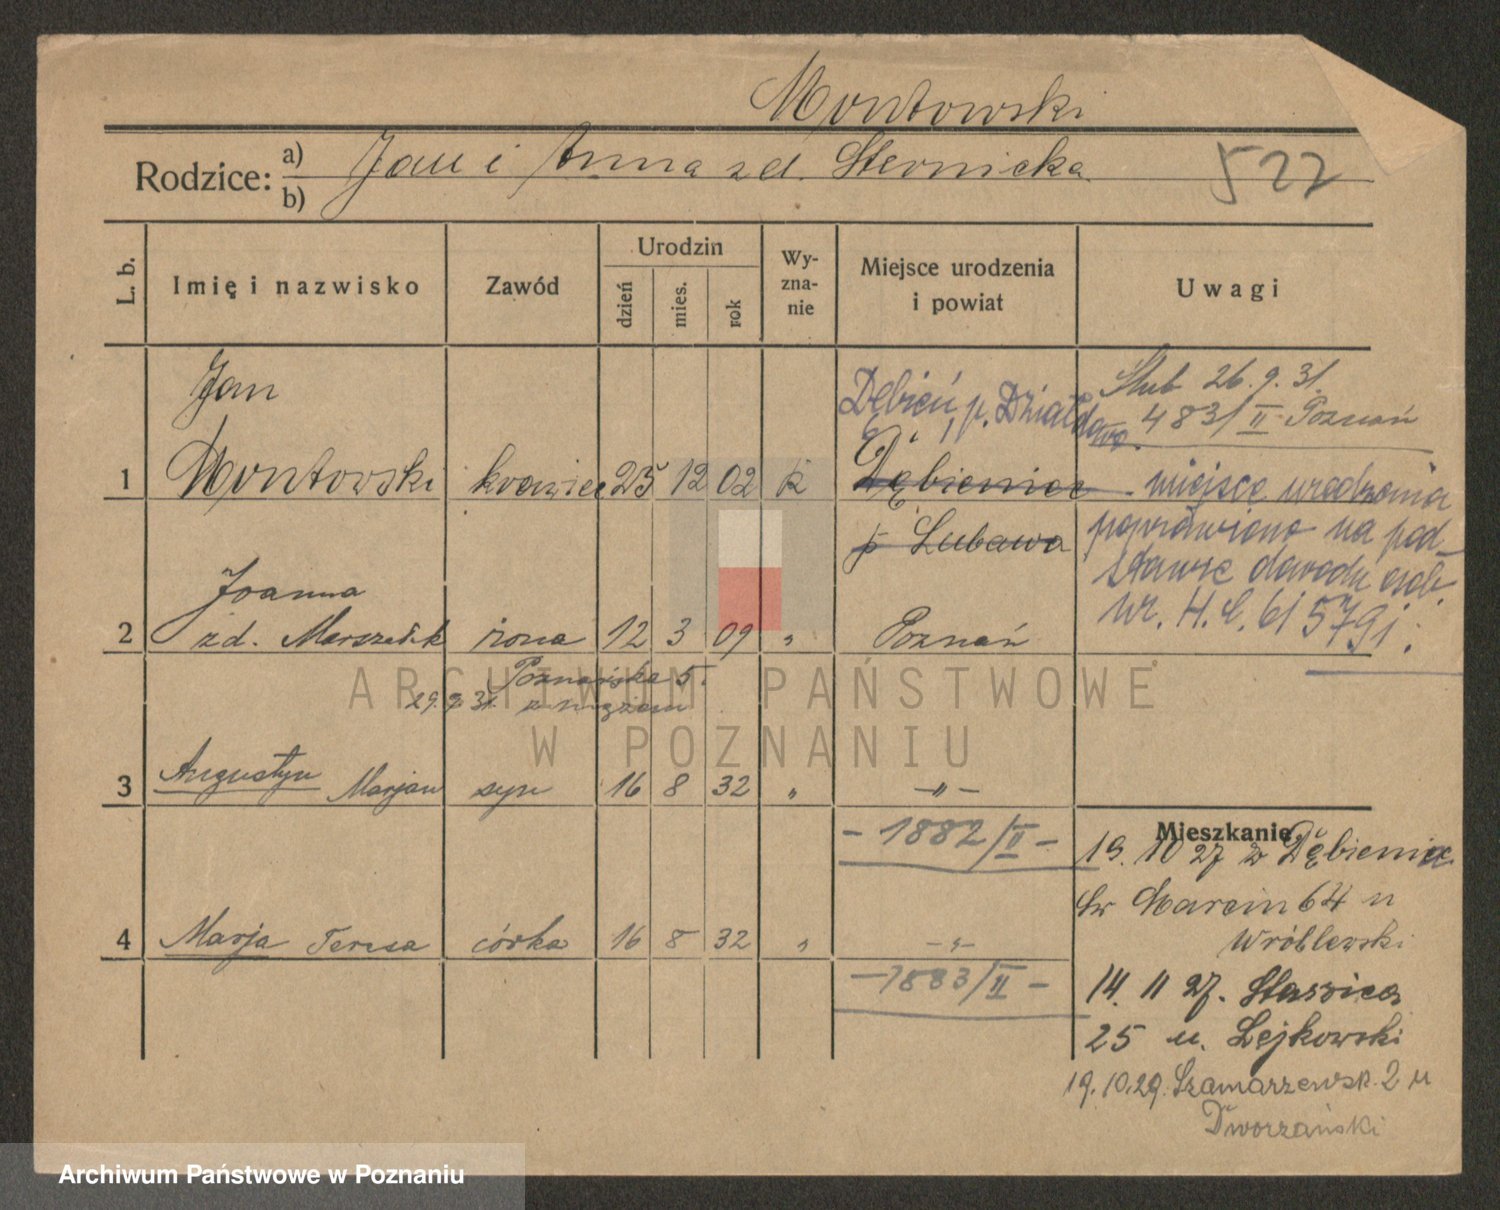 Montowski
Rodzice: a) Jan i Anna zd. Sternicka
b)
522
L. b.
Imię i nazwisko
Zawód
Urodzin
dzień
mies.
rok
Wy-
zna-
nie
Miejsce urodzenia
i powiat
Uwagi
Jan
1 Montowski krawiec 25 12 02 k
Dębień, p. Działdowo
Dębieniec
p Lubawa
Ślub 26.9.31.
483/II Poznań
miejsce urodzenia
poprawiono na pod-
stawie dowodu osob.
nr. H.C. 61579j.
Joanna
2 zd. Marszałek żona 12 3 09 " Poznań
Poznańska 5.
29.9.31. z mężem
3 Augustyn Marjan syn 16 8 32 " -"-
- 1882/II -
4 Marja Teresa córka 16 8 32 " -"-
- 1883/II -
Mieszkanie
19. 10 27 z Dębieniec
Św Marcin 64 u
Wróblewski
14. 11 27. Staszica
25 u. Lejkowski
19.10.29. Szamarzewsk. 2 u
Dworzański
ARCHIWUM PAŃSTWOWE
W POZNANIU
Archiwum Państwowe w Poznaniu